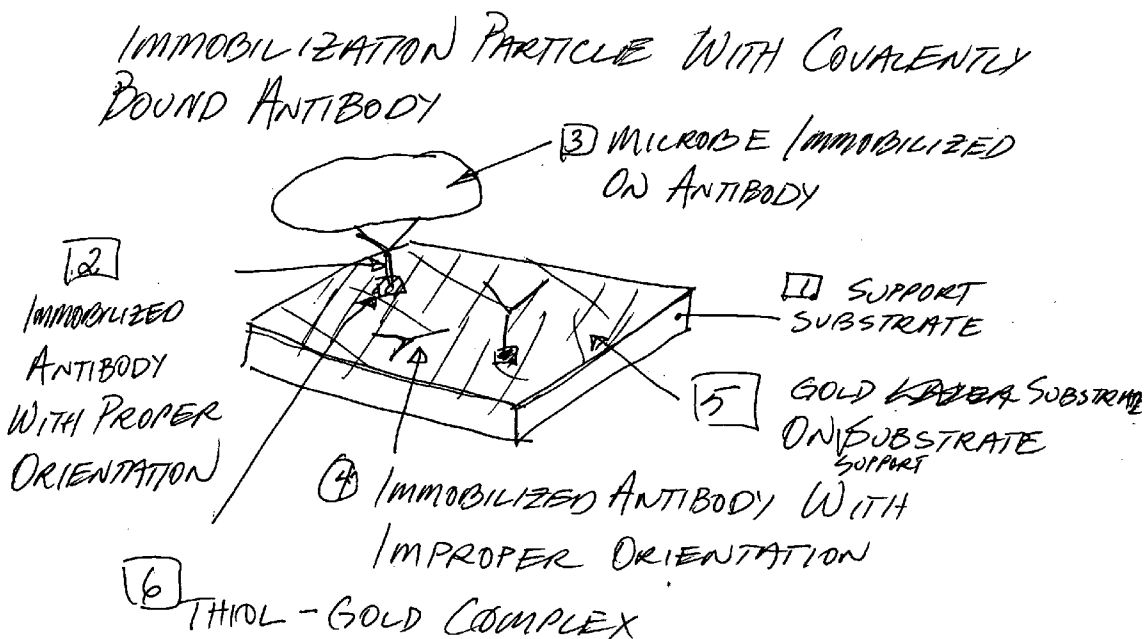 IMMOBILIZATION PARTICLE WITH COVALENTLY
BOUND ANTIBODY
3 MICROBE IMMOBILIZED
ON ANTIBODY
2
IMMOBILIZED
ANTIBODY
WITH PROPER
ORIENTATION
1 SUPPORT
SUBSTRATE
5 GOLD SUBSTRATE
ON SUPPORT SUBSTRATE
4 IMMOBILIZED ANTIBODY WITH
IMPROPER ORIENTATION
6 THIOL-GOLD COMPLEX